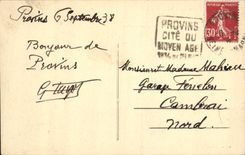 Provins 6 Septembre 38
Bonjour de
Provins
PROVINS
CITÉ DU
MOYEN AGE
30
Monsieur et Madame Mahieu
Garage Fénelon
Cambrai
Nord.